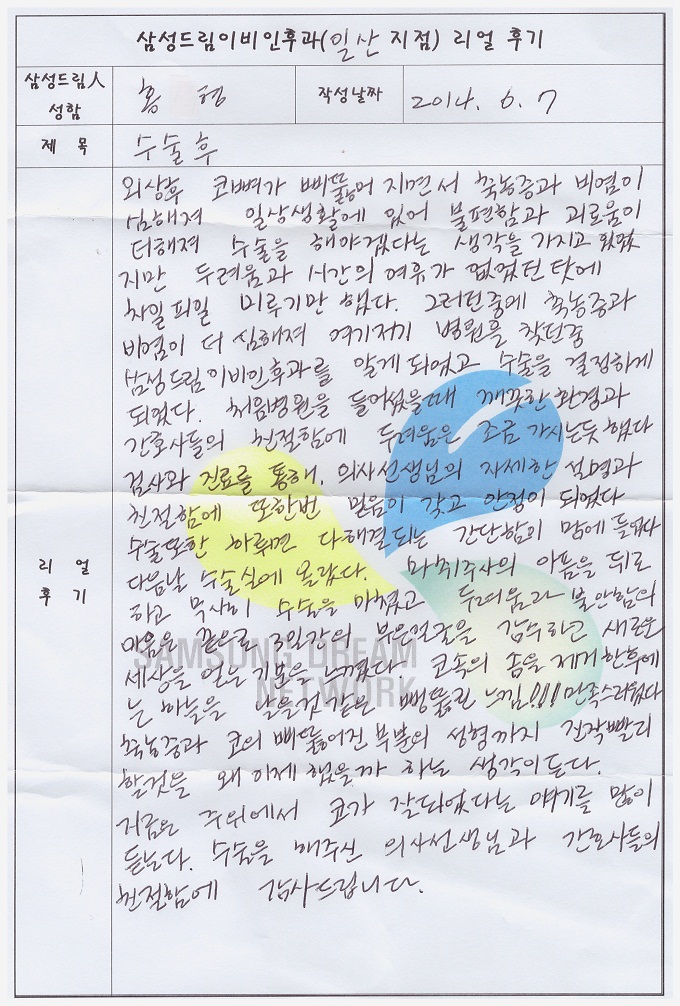 삼성드림이비인후과(일산 지점) 리얼 후기
삼성드림人 성함
홍 형
작성날짜
2014. 6. 7
제 목
수술후
리 얼 후 기
외상후 코뼈가 삐뚫어 지면서 축농증과 비염이
심해져 일상생활에 있어 불편함과 괴로움이
더해져 수술을 해야겠다는 생각을 가지고 있었
지만 두려움과 시간의 여류가 없었던 탓에
차일피일 미루기만 했다. 그러던중에 축농증과
비염이 더 심해져 여기저기 병원을 찾던중
삼성드림이비인후과를 알게되었고 수술을 결정하게
되었다. 처음병원을 들어섰을때 깨끗한 환경과
간호사들의 친절함에 두려움은 조금 가시는듯 했다
검사와 진료를 통해, 의사선생님의 자세한 설명과
친절함에 또한번 믿음이 갖고 안정이 되었다
수술또한 하루면 다해결되는 간단함이 맘에 들었다
다음날 수술실에 올랐다. 마취주사의 아픔을 뒤로
하고 무사히 수술을 마쳤고 두려움과 불안함의
마음은 끝으로 3일간의 부은얼굴을 감수하고 새로운
세상을 얻은 기분을 느꼈다. 코속의 솜을 제거한후에
는 하늘을 날을것 같은 뻥뚫린 느낌!!! 만족스러웠다
축농증과 코의 삐뚫어진 부분의 성형까지 진작빨리
할것을 왜 이제 했을까 하는 생각이 든다.
지금은 주위에서 코가 잘되었다는 얘기를 많이
듣는다. 수술을 해주신 의사선생님과 간호사들의
친절함에 감사드립니다.
SAMSUNG DREAM
NETWORK